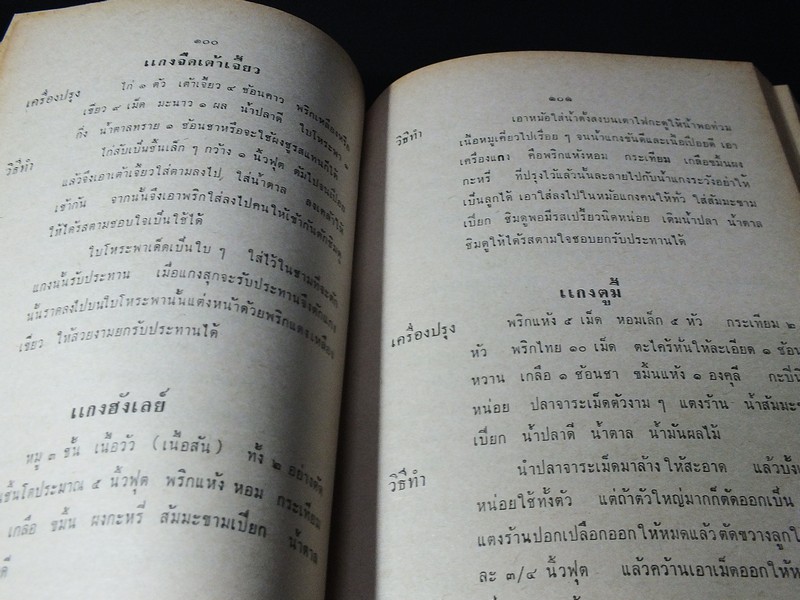 ๑๐๐
แกงจืดเต้าเจี้ยว
เครื่องปรุง
ไก่ ๑ ตัว เต้าเจี้ยว ๔ ช้อนคาว พริกเหลืองหรือ
เขียว ๙ เม็ด มะนาว ๑ ผล น้ำปลาดี ใบโหระพา
กิ่ง น้ำตาลทราย ๑ ช้อนชาหรือจะใช้ผงชูรสแทนก็ได้
วิธีทำ
ไก่สับเป็นชิ้นเล็ก ๆ กว้าง ๑ นิ้วฟุต ต้มไปจนเปื่อย
แล้วจึงเอาเต้าเจี้ยวใส่ตามลงไป, ใส่น้ำตาล
เข้ากัน จากนั้นจึงเอาพริกใส่ลงไปคนให้เข้ากันตักชิมดู
ให้ได้รสตามชอบใจเป็นใช้ได้
ใบโหระพาเด็ดเป็นใบ ๆ ใส่ไว้ในชามที่จะตัก
แกงนั้นรับประทาน เมื่อแกงสุกจะรับประทานจึงตักแกง
นั้นราดลงไปบนใบโหระพานั้นแต่งหน้าด้วยพริกแดงเหลือง
เขียว ให้สวยงามยกรับประทานได้
แกงฮังเลย์
หมู ๓ ชั้น เนื้อวัว (เนื้อสัน) ทั้ง ๒ อย่างตัด
เป็นชิ้นโตประมาณ ๕ นิ้วฟุต พริกแห้ง หอม กระเทียม
เกลือ ขมิ้น ผงกะหรี่ ส้มมะขามเปียก น้ำตาล
๑๐๑
วิธีทำ
เอาหม้อใส่น้ำตั้งลงบนเตาไฟกะดูให้น้ำพอท่วม
เนื้อหมูเคี่ยวไปเรื่อย ๆ จนน้ำแกงข้นดีและเนื้อเปื่อยดี เอา
เครื่องแกง คือพริกแห้งหอม กระเทียม เกลือขมิ้นผง
กะหรี่ ที่ปรุงไว้แล้วนั้นละลายไปกับน้ำแกงระวังอย่าให้
เป็นลูกได้ เอาใส่ลงไปในหม้อแกงคนให้ทั่ว ใส่ส้มมะขาม
เปียก ชิมดูพอมีรสเปรี้ยวนิดหน่อย เติมน้ำปลา น้ำตาล
ชิมดูให้ได้รสตามใจชอบยกรับประทานได้
แกงตูมี้
เครื่องปรุง
พริกแห้ง ๕ เม็ด หอมเล็ก ๕ หัว กระเทียม ๒
หัว พริกไทย ๑๐ เม็ด ตะไคร้หั่นให้ละเอียด ๑ ช้อน
หวาน เกลือ ๑ ช้อนชา ขมิ้นแห้ง ๑ องคุลี กะปินิด
หน่อย ปลาจาระเม็ดตัวงาม ๆ แตงร้าน น้ำส้มมะขาม
เปียก น้ำปลาดี น้ำตาล น้ำมันผลไม้
วิธีทำ
นำปลาจาระเม็ดมาล้าง ให้สะอาด แล้วบั้ง
หน่อยใช้ทั้งตัว แต่ถ้าตัวใหญ่มากก็ตัดออกเป็น
แตงร้านปอกเปลือกออกให้หมดแล้วตัดขวางลูก
ละ ๓/๔ นิ้วฟุต แล้วคว้านเอาเม็ดออกให้